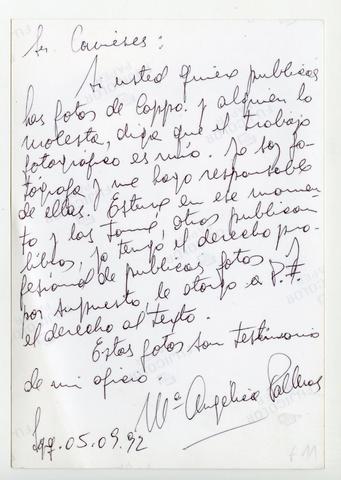 Sr. Cavieses:
Si usted quiere publicar
las fotos de Coppo. y alguien lo
molesta, diga que el trabajo
fotográfico es mío. Yo soy fo-
tógrafa y me hago responsable
de ellas. Estuve en ese momen-
to y las tomé, otros publican
libros, yo tengo el derecho pro-
fesional de publicar fotos y
por supuesto, le otorgo a P.F.
el derecho al texto.
Estas fotos son testimonio
de mi oficio.
Mª Angélica
05.09.92